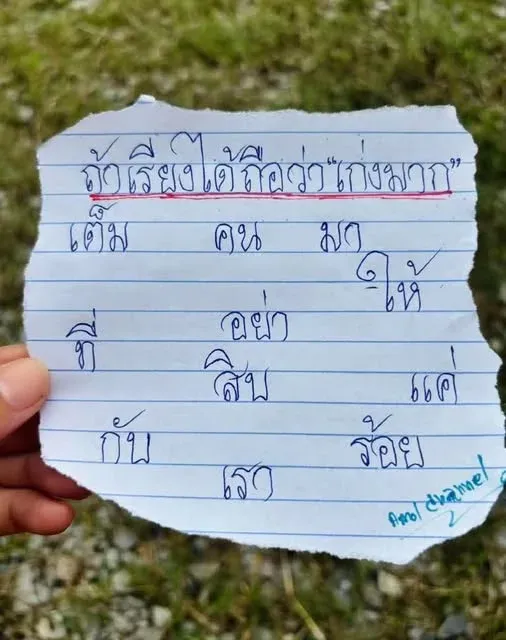 ถ้าเรียงได้ถือว่า"เก่งมาก"
เต็ม คน มา
ให้
อย่า
ที่
สิบ แค่
กับ ร้อย
เรา
channel